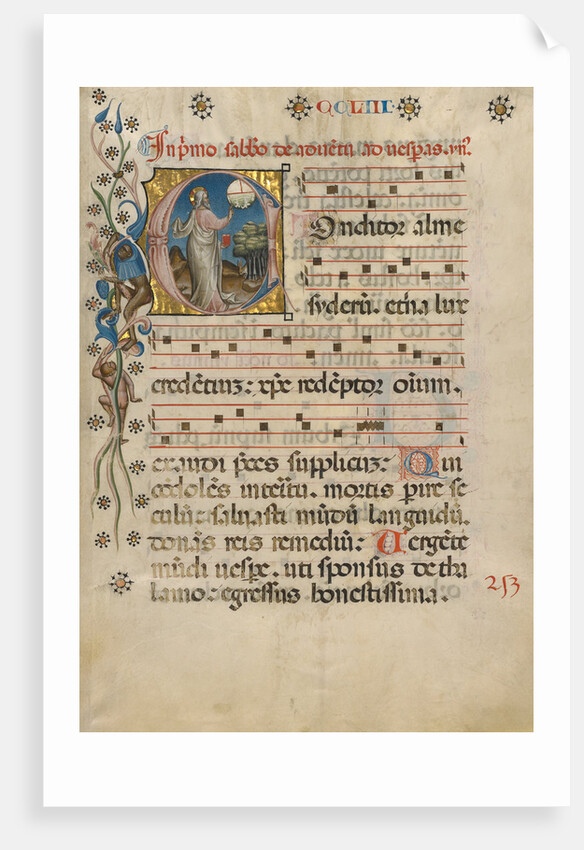 CCLIII
In p̄mo sabb̄o de aduētu ad uesperas. ym̄.
Conditor alme
syderū. etna lux
credētiuȝ: xp̄e redēptor oīum.
exaudi p̄ces suppliciuȝ: Qui
cōdolēs interitu. mortis perire se
culū: saluasti mūdū languidū.
donās reis remediū: Uergēte
mūdi uespe. uti sponsus de tha
lamo: egressus honestissima.
253